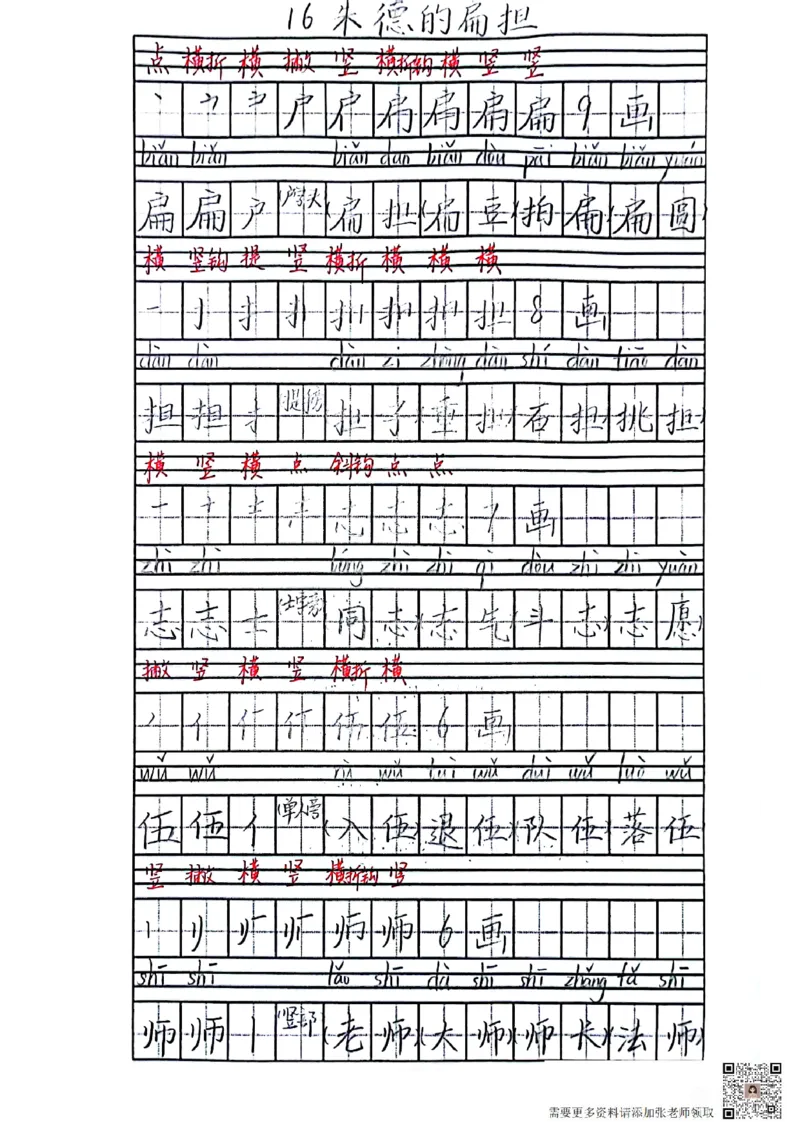 16 朱德的扁担
点 横折 横 撇 竖 横折钩 横 竖 竖
扁 9 画
biǎn biǎn biǎn dan biǎn dòu pāi biǎn biǎn yuán
扁 扁 户 (户字头) (扁担) (扁豆) (拍扁) (扁圆)
横 竖钩 提 竖 横折 横 横 横
一 扌 担 8 画
dàn dàn dàn zi zhòng dàn shí dàn tiāo dàn
担 担 扌 (提手旁) (担子) (重担) (石担) (挑担)
横 竖 横 点 斜钩 点 点
一 十 士 志 志 志 7 画
zhì zhì tóng zhì zhì qì dòu zhì zhì yuàn
志 志 士 (士字头) (同志) (志气) (斗志) (志愿)
撇 竖 横 竖 横折 横
亻 伍 伍 6 画
wǔ wǔ rù wǔ tuì wǔ duì wǔ luò wǔ
伍 伍 亻 (单人旁) (入伍) (退伍) (队伍) (落伍)
竖 撇 横 竖 横折钩 竖
师 6 画
shī shī lǎo shī dà shī shī zhǎng fǎ shī
师 师 (老师) (大师) (师长) (法师)
需要更多资料请添加张老师领取